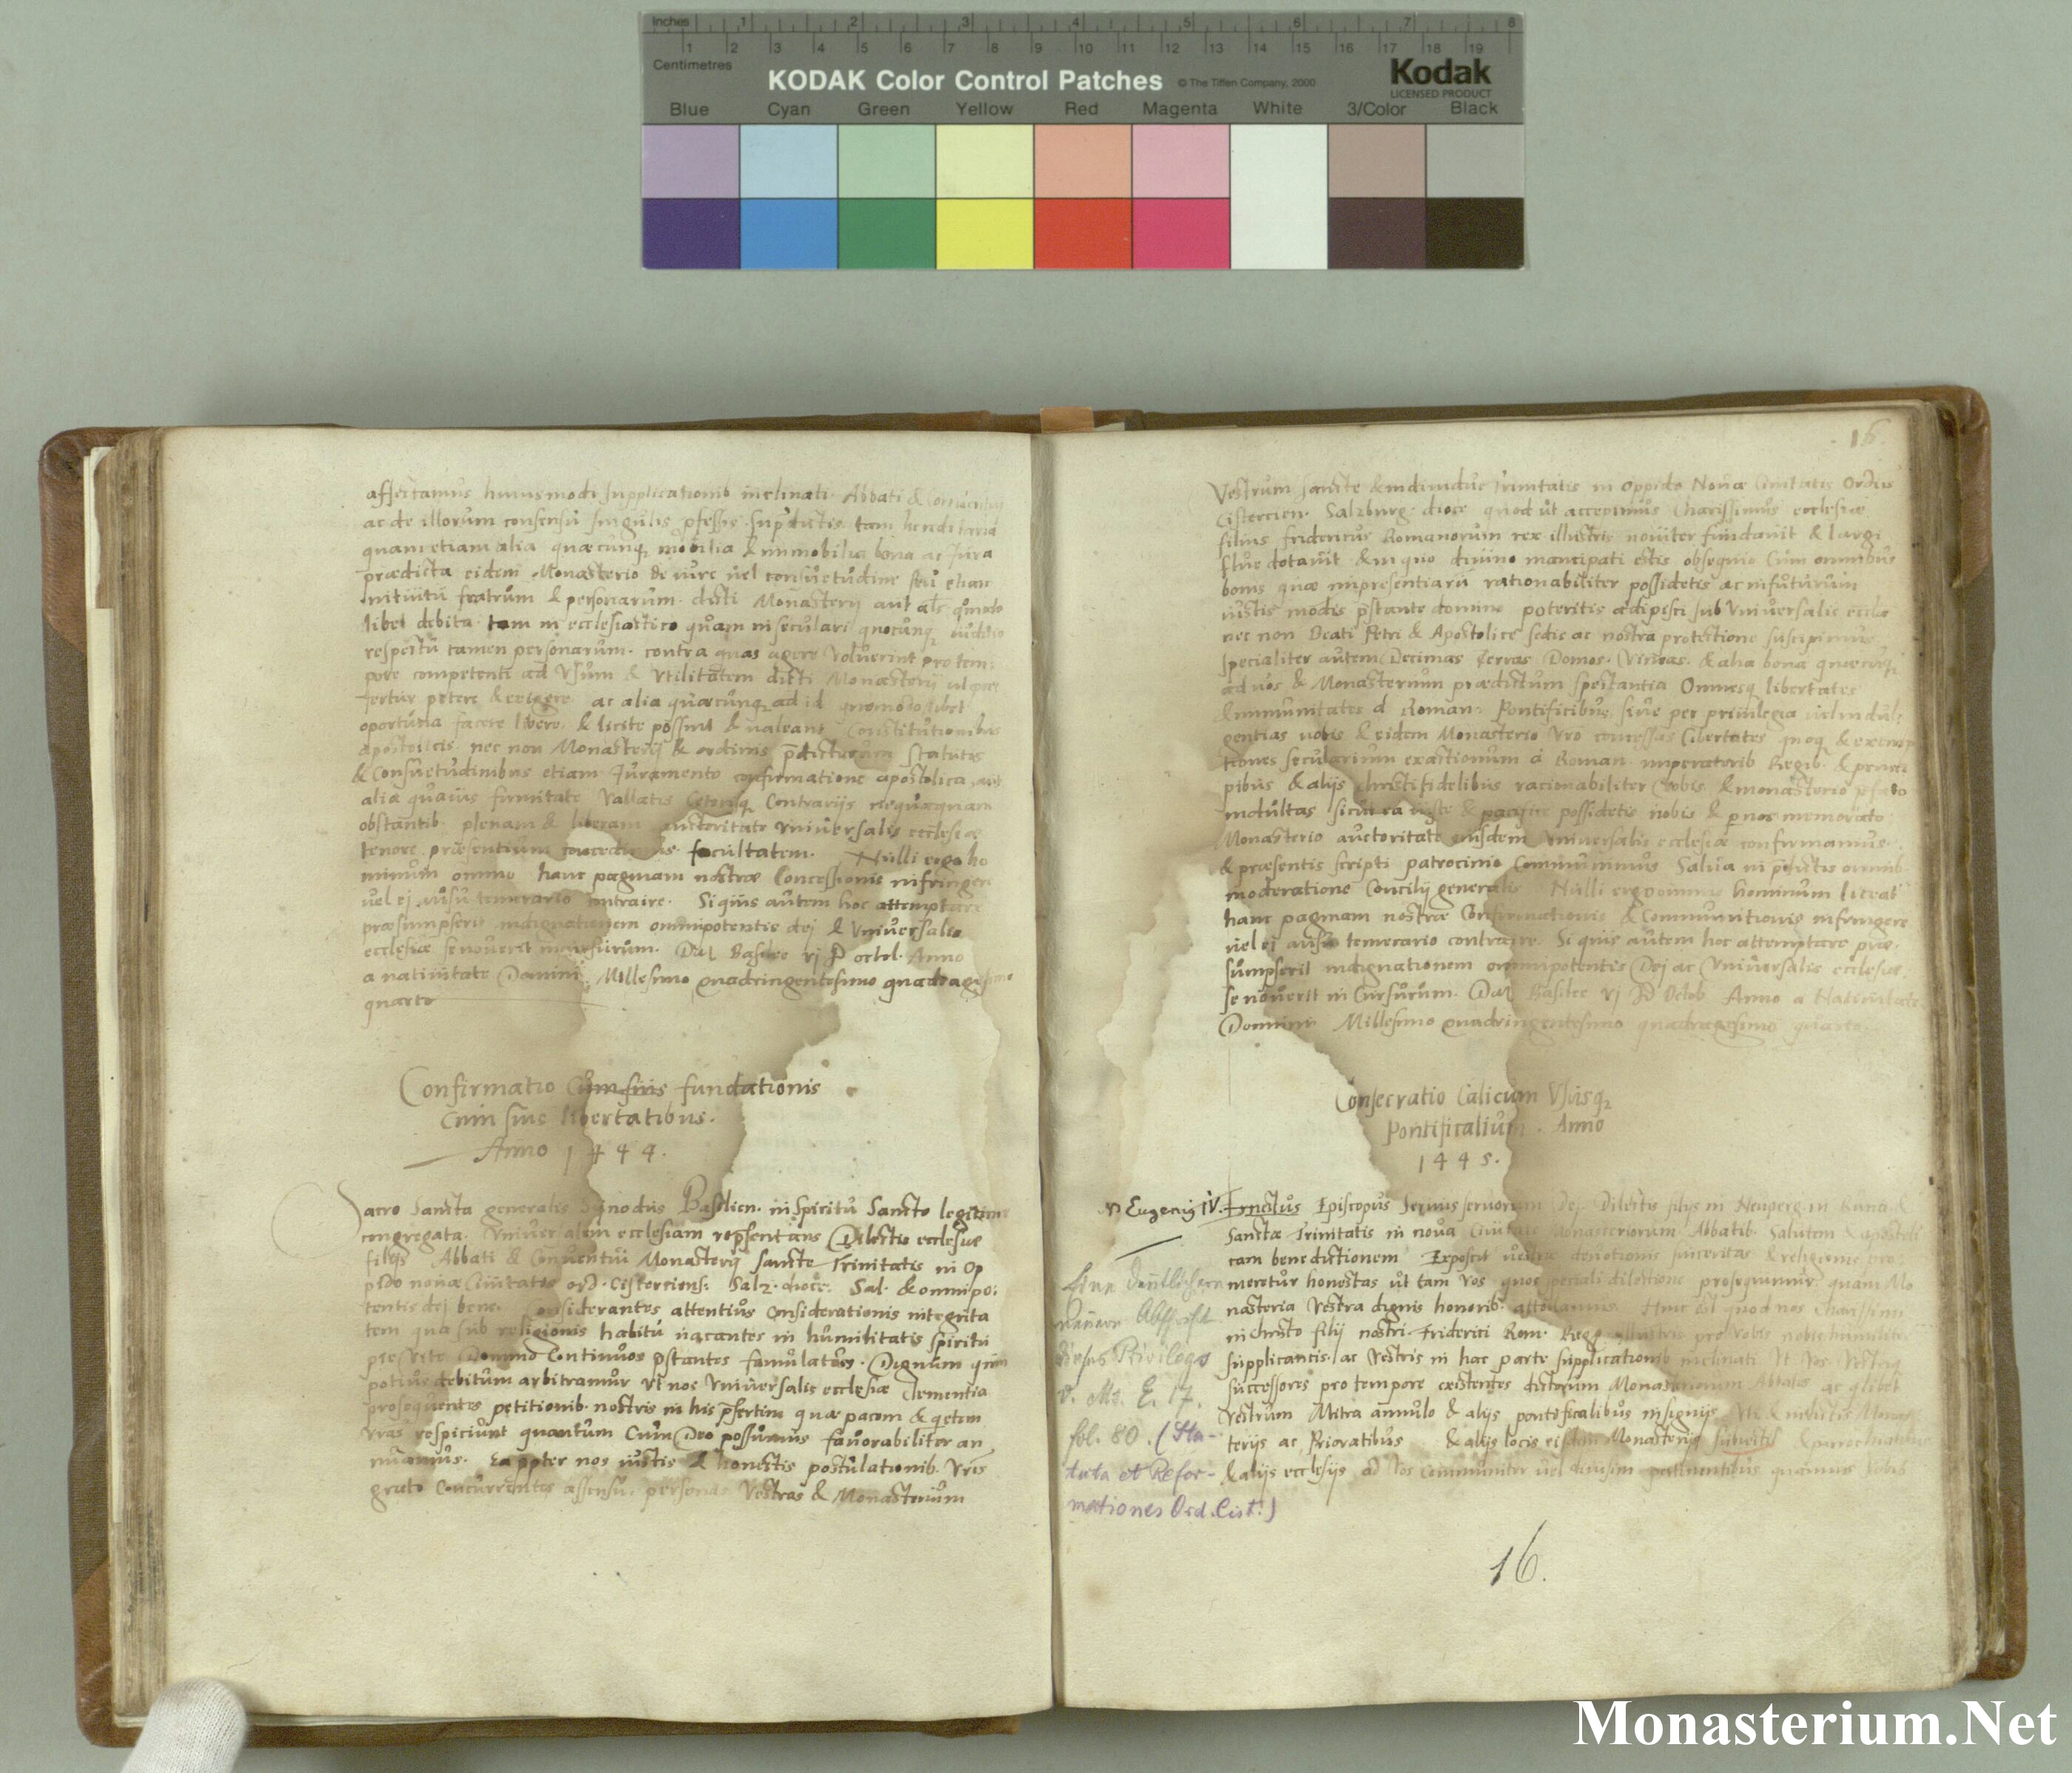 Inches 1 2 3 4 5 6 7 8
1 2 3 4 5 6 7 8 9 10 11 12 13 14 15 16 17 18 19
Centimetres
KODAK Color Control Patches © The Tiffen Company, 2000 Kodak
LICENSED PRODUCT
Blue Cyan Green Yellow Red Magenta White 3/Color Black
affectamus huiusmodi supplicationib inclinati Abbati & Conuentui
ac de illorum consensu singulis pfessis supdictis tam hereditaria
quam etiam alia quæcunq mobilia & immobilia bona ac Jura
prædicta eidem Monasterio de iure uel consuetudine seu etiam
intuitu fratrum & personarum dicti Monasterij aut als qomodo
libet debita tam in ecclesiastico quam in seculari quocunq iudicio
respectu tamen personarum contra quas agere voluerint pro tem:
pore competenti ad Vsum & Vtilitatem dicti Monasterij ut
fertur petere & exigere ac alia quæcunq ad id quomodolibet
oportuna facere libere & licite possint & ualeant Constitutionibus
Apostolicis nec non Monasterij & ordinis pdictorum statutis
& consuetudinibus etiam Juramento confirmatione apostolica aut
alia quauis firmitate Vallatis Ceterisq Contrarijs nequaquam
obstantib plenam & liberam auctoritate Vniuersalis ecclesiæ
tenore præsentium concedimus facultatem. Nulli ergo ho
minum omnino hanc paginam nostræ Concessionis infringere
uel ej ausu temerario contraire. Si quis autem hoc attemptare
præsumpserit indignationem omnipotentis dej & Vniuersalis
ecclesiæ se nouerit incursurum. Dat Basilee vj octob. Anno
a natiuitate Domini Millesimo quadringentesimo quadragesimo
quarto
Confirmatio Cum suis fundationis
Cum suis libertatibus.
Anno 1444.
Sacro Sancta generalis Synodus Basilien. in Spiritu Sancto legitime
congregata. Vniuersalem ecclesiam repsentans Dilectis ecclesiæ
filijs Abbati & Conuentui Monasterij sancte Trinitatis in Op
pido nouæ Ciuitatis ord. Cisterciens. Salz. dioce. Sal. & omnipo:
tentis dej bene. Considerantes attentius Considerationis integrita
tem qua sub religionis habitu uacantes in humilitatis spiritu
pie Vite Domino Continuos pstantes famulatus. Dignum quin
potius debitum arbitramur Vt nos Vniuersalis ecclesiæ Clementia
prosequentes petitionib. nostris in his psertim quæ pacem & qetem
vras respiciunt quantum Cum Deo possumus fauorabiliter an
nuamus. Eappter nos iustis & honestis postulationib. Vris
grato Concurrentes assensu. personas Vestras & Monasterium
16.
Vestrum sancte & indiuidue Trinitatis in Oppido Nouæ Ciuitatis Ordis
Cistercien. Salzburg. dioce quod ut accepimus Charissimus ecclesiæ
filius fridericus Romanorum rex illustris nouiter fundauit & largi
flue dotauit & in quo diuino mancipati estis obsequio Cum omnibus
bonis quæ inpresentiaru rationabiliter possidetis ac in futurum
iustis modis pstante domino poteritis adipisci sub Vniuersalis eccle
nec non Beati Petri & Apostolice sedis ac nostra protectione suscipimus
specialiter autem Decimas Terras Domos. Vineas. & alia bona quæcunq
ad uos & Monasterium prædictum spectantia Omnesq libertates
& immunitates a Roman. Pontificibus siue per priuilegia uel indul:
gentias uobis & eidem Monasterio vro concessas Libertates quoq & exemp
tiones secularium exactionum a Roman. imperatorib Regib. & princi
pibus & alijs christifidelibus racionabiliter Vobis & monasterio pfato
indultas sicut ea iuste & pacifice possidetis uobis & p uos memorato
Monasterio auctoritate eiusdem Vniuersalis ecclesiæ confirmamus
& præsentis scripti patrocinio Communimus Salua in pdictis omnib
moderatione Concilij generalis Nulli ergo omnino hominum liceat
hanc paginam nostræ Confirmationis & Communitionis infringere
uel ej ausu temerario contraire. Si quis autem hoc attemptare præ:
sumpserit indignationem omnipotentis Dej ac Vniuersalis ecclesiæ
se nouerit in Cursurum. Dat Basilee vj Octob. Anno a Natiuitate
Domini Millesimo quadringentesimo quadragesimo quarto
Consecratio Calicum Vsusq
Pontificalium. Anno
1445.
Eugenij IV. Ernestus Episcopus seruus seruorum Dej Dilectis filijs in Neuperg. in Runa &
Sanctæ Trinitatis in noua Ciuitate Monasteriorum Abbatib. Salutem & apostoli
cam benedictionem Exposcit uestræ deuotionis sinceritas & religionis pro
meretur honestas ut tam vos quos speciali dilectione prosequimur quam Mo
nasteria Vestra dignis honorib. attollamus. Hinc est quod nos Charissimi
in christo filij nostri Friderici Rom. Regis illustris pro vobis nobis humiliter
supplicantis ac Vestris in hac parte supplicationib inclinati Vt vos Vestriq
successores pro tempore existentes dictorum Monasteriorum Abbates ac qlibet
Vestrum Mitra annulo & alijs pontificalibus insignijs Vti & in dictis Monas
terijs ac Prioratibus & alijs locis eisdem Monasterijs subiectis & parrochialibus
& alijs ecclesijs ad Vos communiter uel diuisim pertinentibus quamuis Vobis
Eine deutlichere
Abschrift
dieses Privilegs
v. Ms. E. 17.
fol. 80. (Sta-
tuta et Refor-
mationes Ord. Cist.)
16.
Monasterium.Net